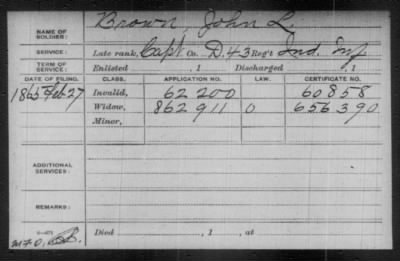 NAME OF SOLDIER: Brown, John L.
SERVICE: Late rank, Capt Co. D. 43 Reg't Ind. Inf
TERM OF SERVICE: Enlisted , 1 Discharged , 1
DATE OF FILING. CLASS. APPLICATION NO. LAW. CERTIFICATE NO.
1865 Feb 27 Invalid, 62200 60858
Widow, 862911 O 656390
Minor,
ADDITIONAL SERVICES:
REMARKS:
Died , 1 , at